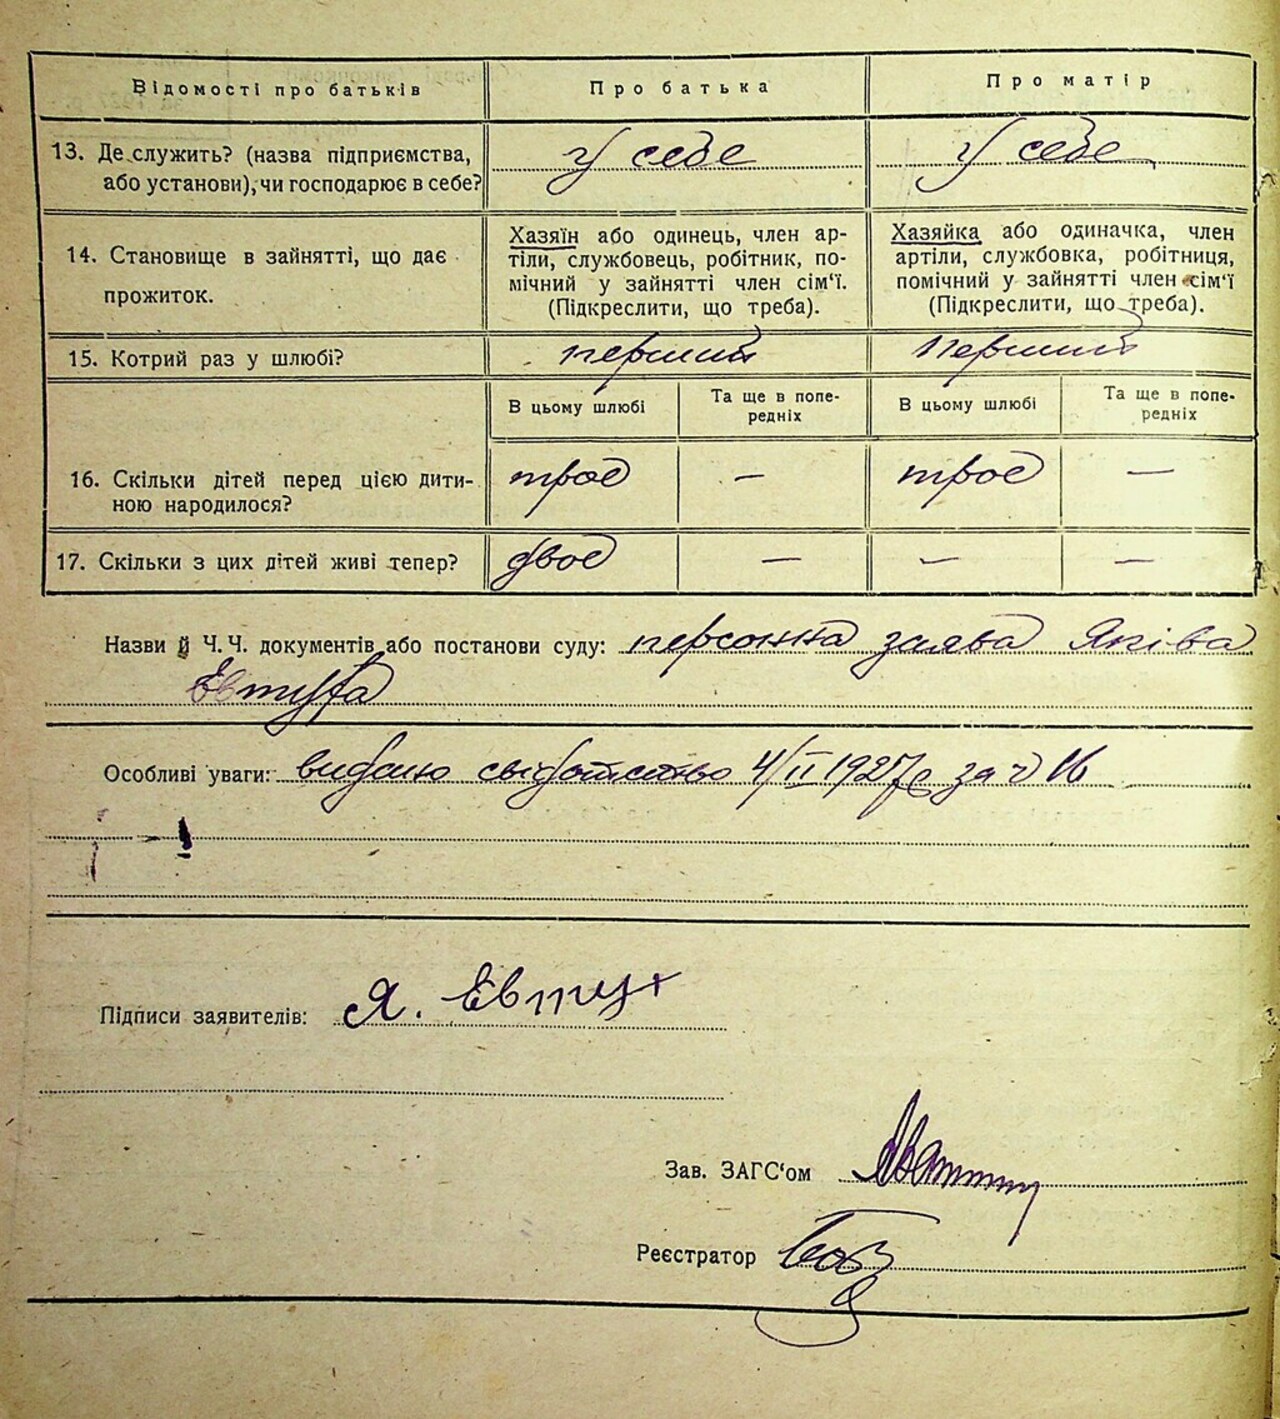 Відомості про батьків Про батька Про матір
13. Де служить? (назва підприємства, або установи), чи господарює в себе? У себе У себе
14. Становище в зайнятті, що дає прожиток.
Хазяїн або одинець, член ар-
тіли, службовець, робітник, по-
мічний у зайнятті член сім'ї.
(Підкреслити, що треба).
Хазяйка або одиначка, член
артіли, службовка, робітниця,
помічний у зайнятті член сім'ї
(Підкреслити, що треба).
15. Котрий раз у шлюбі? перший Перший
В цьому шлюбі Та ще в попе-
редніх В цьому шлюбі Та ще в попе-
редніх
16. Скільки дітей перед цією дити-
ною народилося? троє — троє —
17. Скільки з цих дітей живі тепер? двоє — — —
Назви й Ч. Ч. документів або постанови суду: персонна заява Яківа
Евтуха
Особливі уваги: видано свідотство 4/II 1927р за ч 16
Підписи заявителів: Я. Евтух
Зав. ЗАГС'ом
Реєстратор